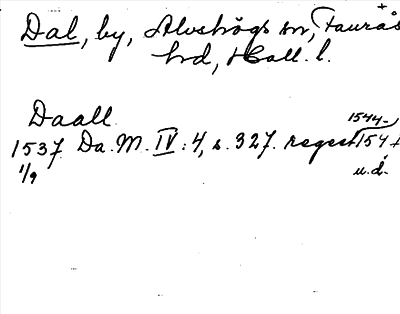 Dal, by, Alvshögs sn, Faurås
hd, Hall. l.
Daall
1544-
1537 Da. M. IV : 4, s. 327. regest 154
1/9
u.d.